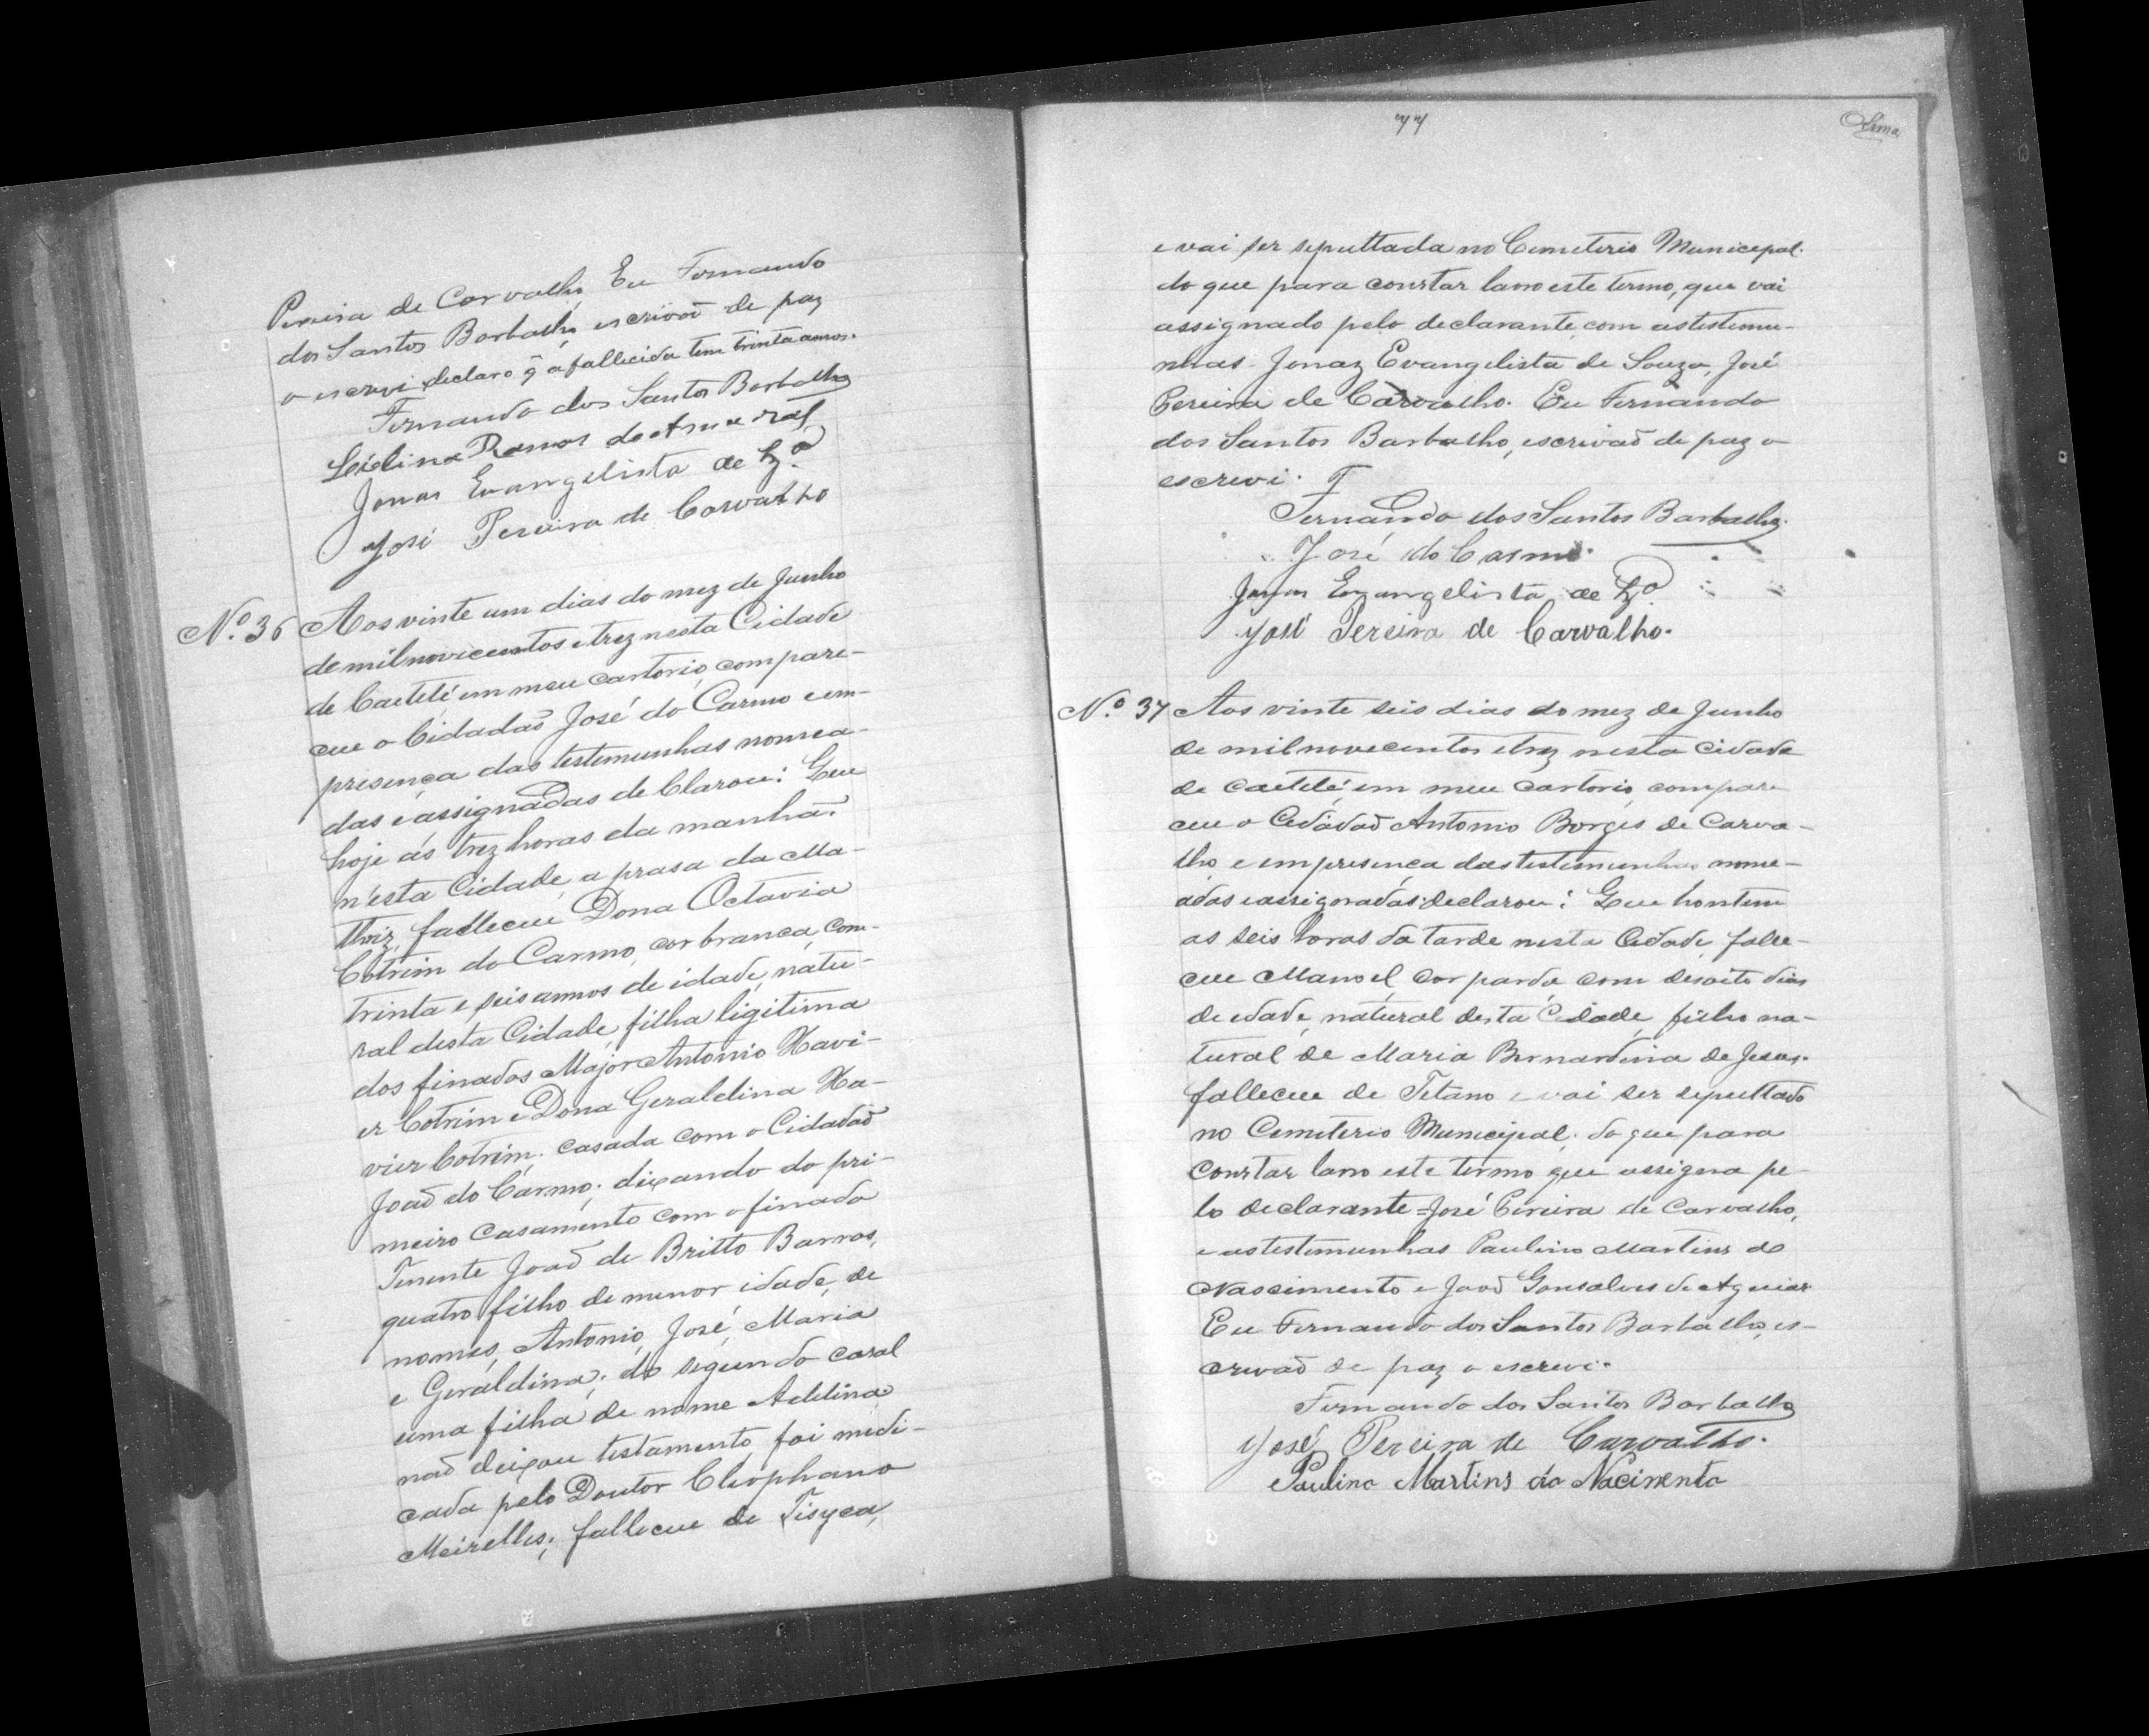 Pereira de Carvalho, Eu Fernando
dos Santos Barbalho, escrivaõ de paz
o escrevi declaro q̃ a fallecida tem trinta annos.
Fernando dos Santos Barbalho
Ramos do Amaral
Jonas Evangelista de Sz.ª
José Pereira de Carvalho
Nº. 36 Aos vinte um dias do mez de Junho
de mil novicentos e trez nesta Cidade
de Caetité, em meu cartorio, compare-
ceu o Cidadaõ José do Carmo e em
presença das testemunhas nomea-
das e assignadas declarou: Que
hoje ás trez horas da manhã.
n'esta Cidade, a prasa da Ma-
thriz, falleceu Dona Octavia
Cotrim do Carmo, cor branca, com
trinta e seis annos de idade, natu-
ral desta Cidade, filha ligitima
dos finados Major Antonio Xavi-
er Cotrim e Dona Geraldina Xa-
vier Cotrim. casada com o Cidadaõ
Joaõ do Carmo; dixando do pri-
meiro casamento com o finado
Tenente Joaõ de Britto Barros,
quatro filho de menor idade, de
nomes, Antonio, José, Maria
e Geraldina; do segundo casal
uma filha de nome Adelina
naõ deixou testamento, foi medi-
cada pelo Doutor Cleophano
Meirelles; falleceu de Tisyca,
77
e vai ser sepultada no Cemeterio Municepal.
do que para constar lavro este termo, que vai
assignado pelo declarante, com as testemu-
nhas Jonaz Evangelista de Souza, José
Pereira de Carvalho. Eu Fernando
dos Santos Barbalho, escrivaõ de paz o
escrevi. F
Fernando dos Santos Barbalho.
José do Carmo.
Jonas Evangelista de Sz.ª
José Pereira de Carvalho.
N.º 37 Aos vinte seis dias do mez de Junho
de mil novecentos e trez nesta Cidade
de Caetité, em meu cartorio, compare
ceu o Cidadaõ Antonio Borges de Carva-
lho e em presença das testemunhas nome-
adas e assignadas declarou: Que hontem
as seis horas da tarde nesta Cidade, falle-
ceu Manoel, cor parda com desoito dias
de edade, natural desta Cidade, filho na-
tural de Maria Bernardina de Jesus.
falleceu de Tetano e vai ser sepultado
no Cemeterio Municipal. do que para
constar lavro este termo que assigna pe-
lo declarante=José Pereira de Carvalho,
e as testemunhas Paulino Martins do
Nascimento e Joaõ Gonsalves de Aguiar
Eu Fernando dos Santos Barbalho, es-
crivaõ de paz o escrevi.
Fernando dos Santos Barbalho
José Pereira de Carvalho.
Paulino Martins do Nacimento